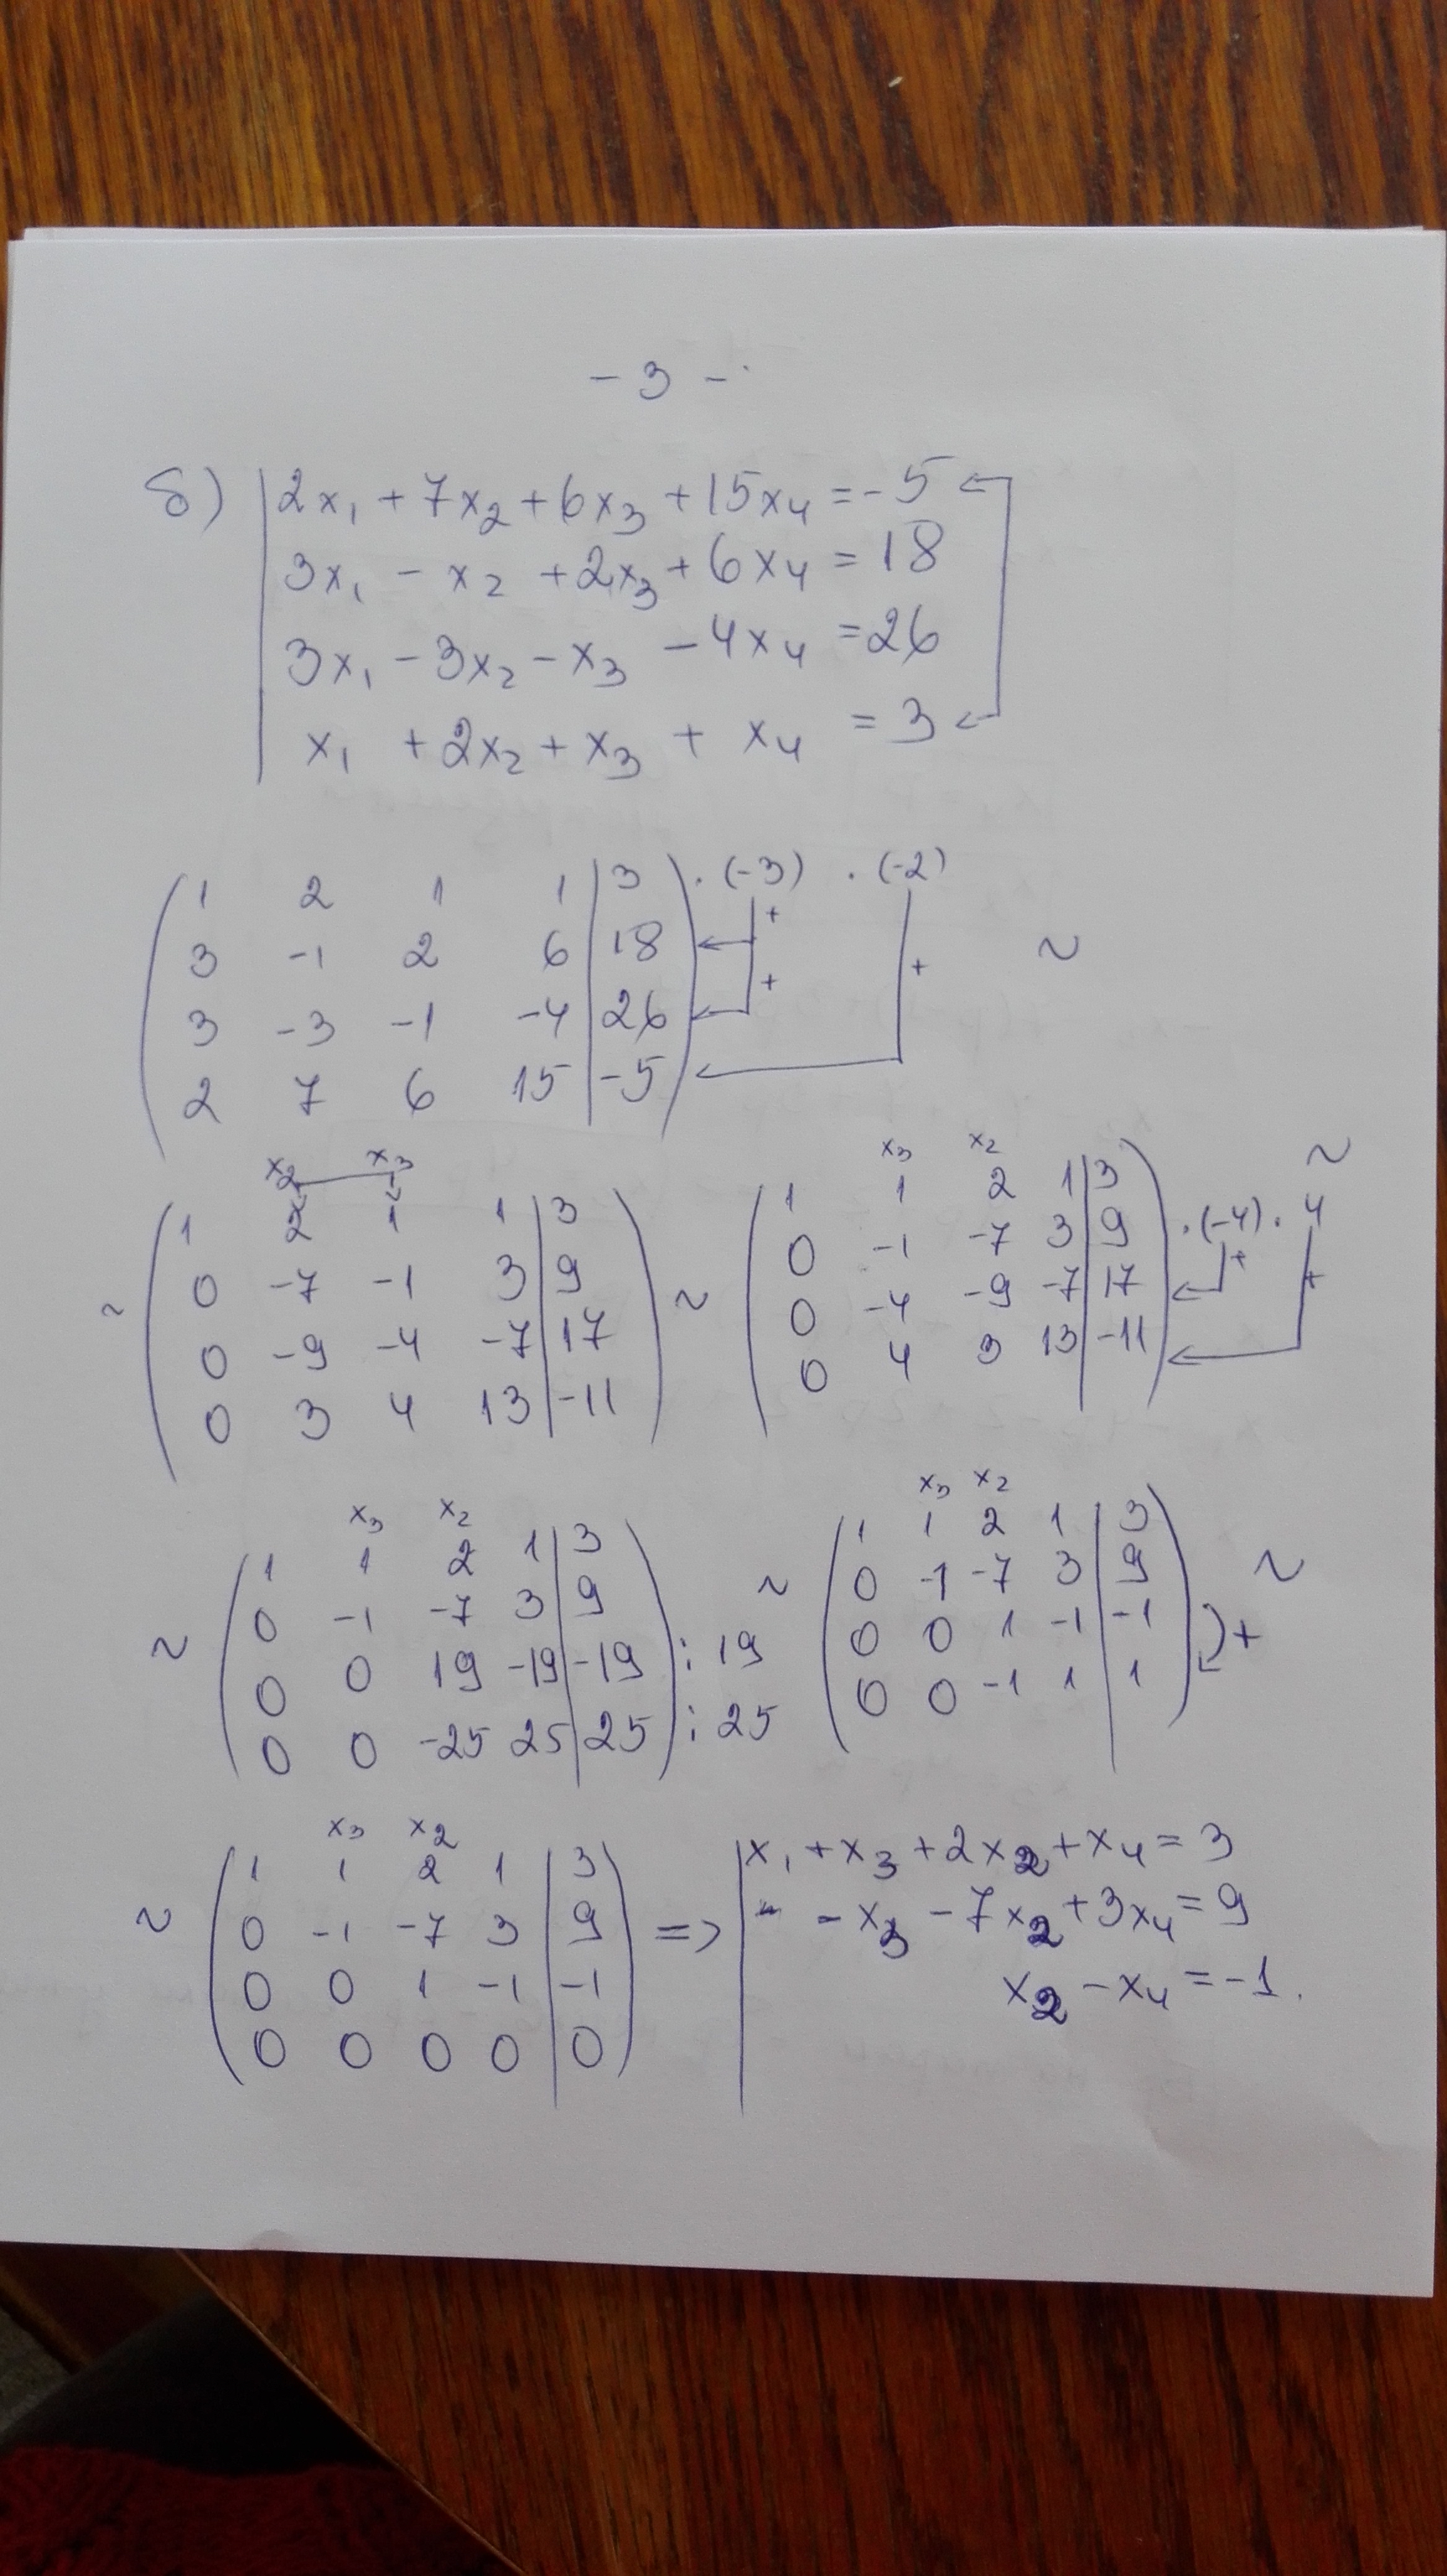 - 3 -
б) 2x₁ + 7x₂ + 6x₃ + 15x₄ = -5
3x₁ - x₂ + 2x₃ + 6x₄ = 18
3x₁ - 3x₂ - x₃ - 4x₄ = 26
x₁ + 2x₂ + x₃ + x₄ = 3
1 2 1 1 | 3 · (-3) · (-2)
3 -1 2 6 | 18 + + ~
3 -3 -1 -4 | 26 +
2 7 6 15 | -5
x₂ x₃
1 2 1 1 | 3
~ 0 -7 -1 3 | 9
0 -9 -4 -7 | 17
0 3 4 13 | -11
x₃ x₂
~ 1 1 2 1 | 3 ~
0 -1 -7 3 | 9 · (-4) · 4
0 -4 -9 -7 | 17 + +
0 4 3 13 | -11
x₃ x₂
1 1 2 1 | 3
~ 0 -1 -7 3 | 9
0 0 19 -19 | -19 : 19
0 0 -25 25 | 25 : 25
x₃ x₂
1 1 2 1 | 3
~ 0 -1 -7 3 | 9 ~
0 0 1 -1 | -1 +
0 0 -1 1 | 1
x₃ x₂
1 1 2 1 | 3
~ 0 -1 -7 3 | 9 =>
0 0 1 -1 | -1
0 0 0 0 | 0
x₁ + x₃ + 2x₂ + x₄ = 3
- x₃ - 7x₂ + 3x₄ = 9
x₂ - x₄ = -1.